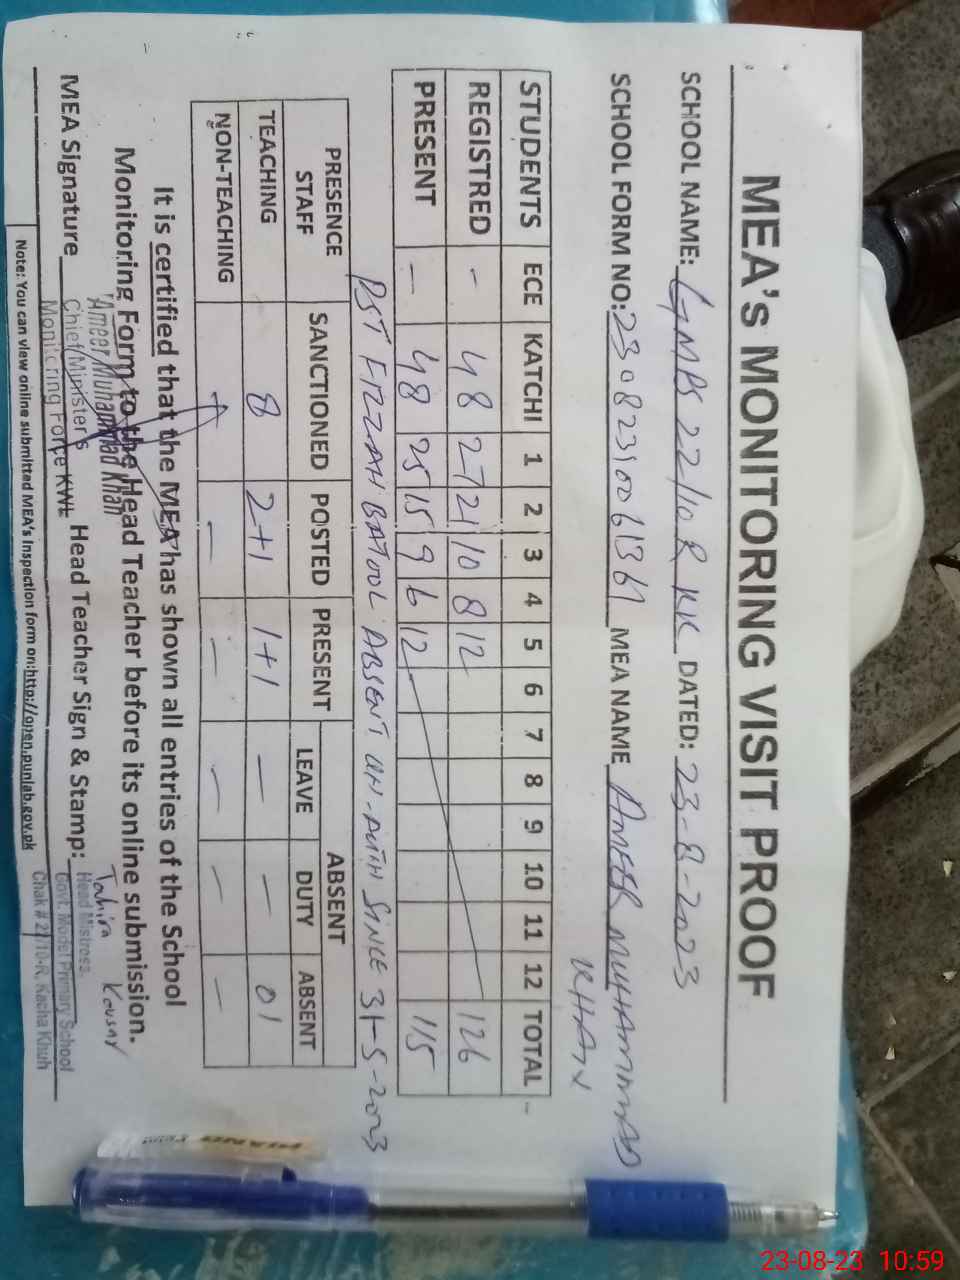 MEA's MONITORING VISIT PROOF
SCHOOL NAME: GMPS 22/10R KK DATED: 23-8-2023
SCHOOL FORM NO: MEA NAME AMEER MUHAMMAD
KHAN
STUDENTS ECE KATCHI 1 2 3 4 5 6 7 8 9 10 11 12 TOTAL
REGISTRED - 48 27 21 10 8 12 126
PRESENT - 48 25 15 9 6 12 115
PST FIZZAH BATOOL ABSENT UN-AUTH SINCE 31-5-2023
PRESENCE STAFF SANCTIONED POSTED PRESENT ABSENT
LEAVE DUTY ABSENT
TEACHING 8 2+1 1+1 - - 01
NON-TEACHING - - - - -
It is certified that the MEA has shown all entries of the School
Monitoring Form to the Head Teacher before its online submission.
Ameer Muhammad Khan
Chief Minister's
Monitoring Force KWL
MEA Signature Head Teacher Sign & Stamp:
Tahira Kousar
Head Mistress.
Govt. Model Primary School
Chak # 22/10-R, Kacha Khuh
Note: You can view online submitted MEA's Inspection form on:http://open.punlab.gov.pk
23-08-23 10:59